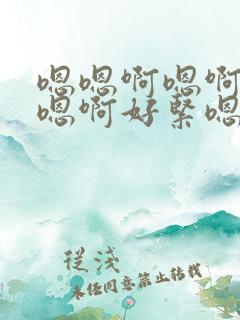 嗯嗯啊嗯啊
嗯啊好紧嗯
從淺
未经同意禁止转载